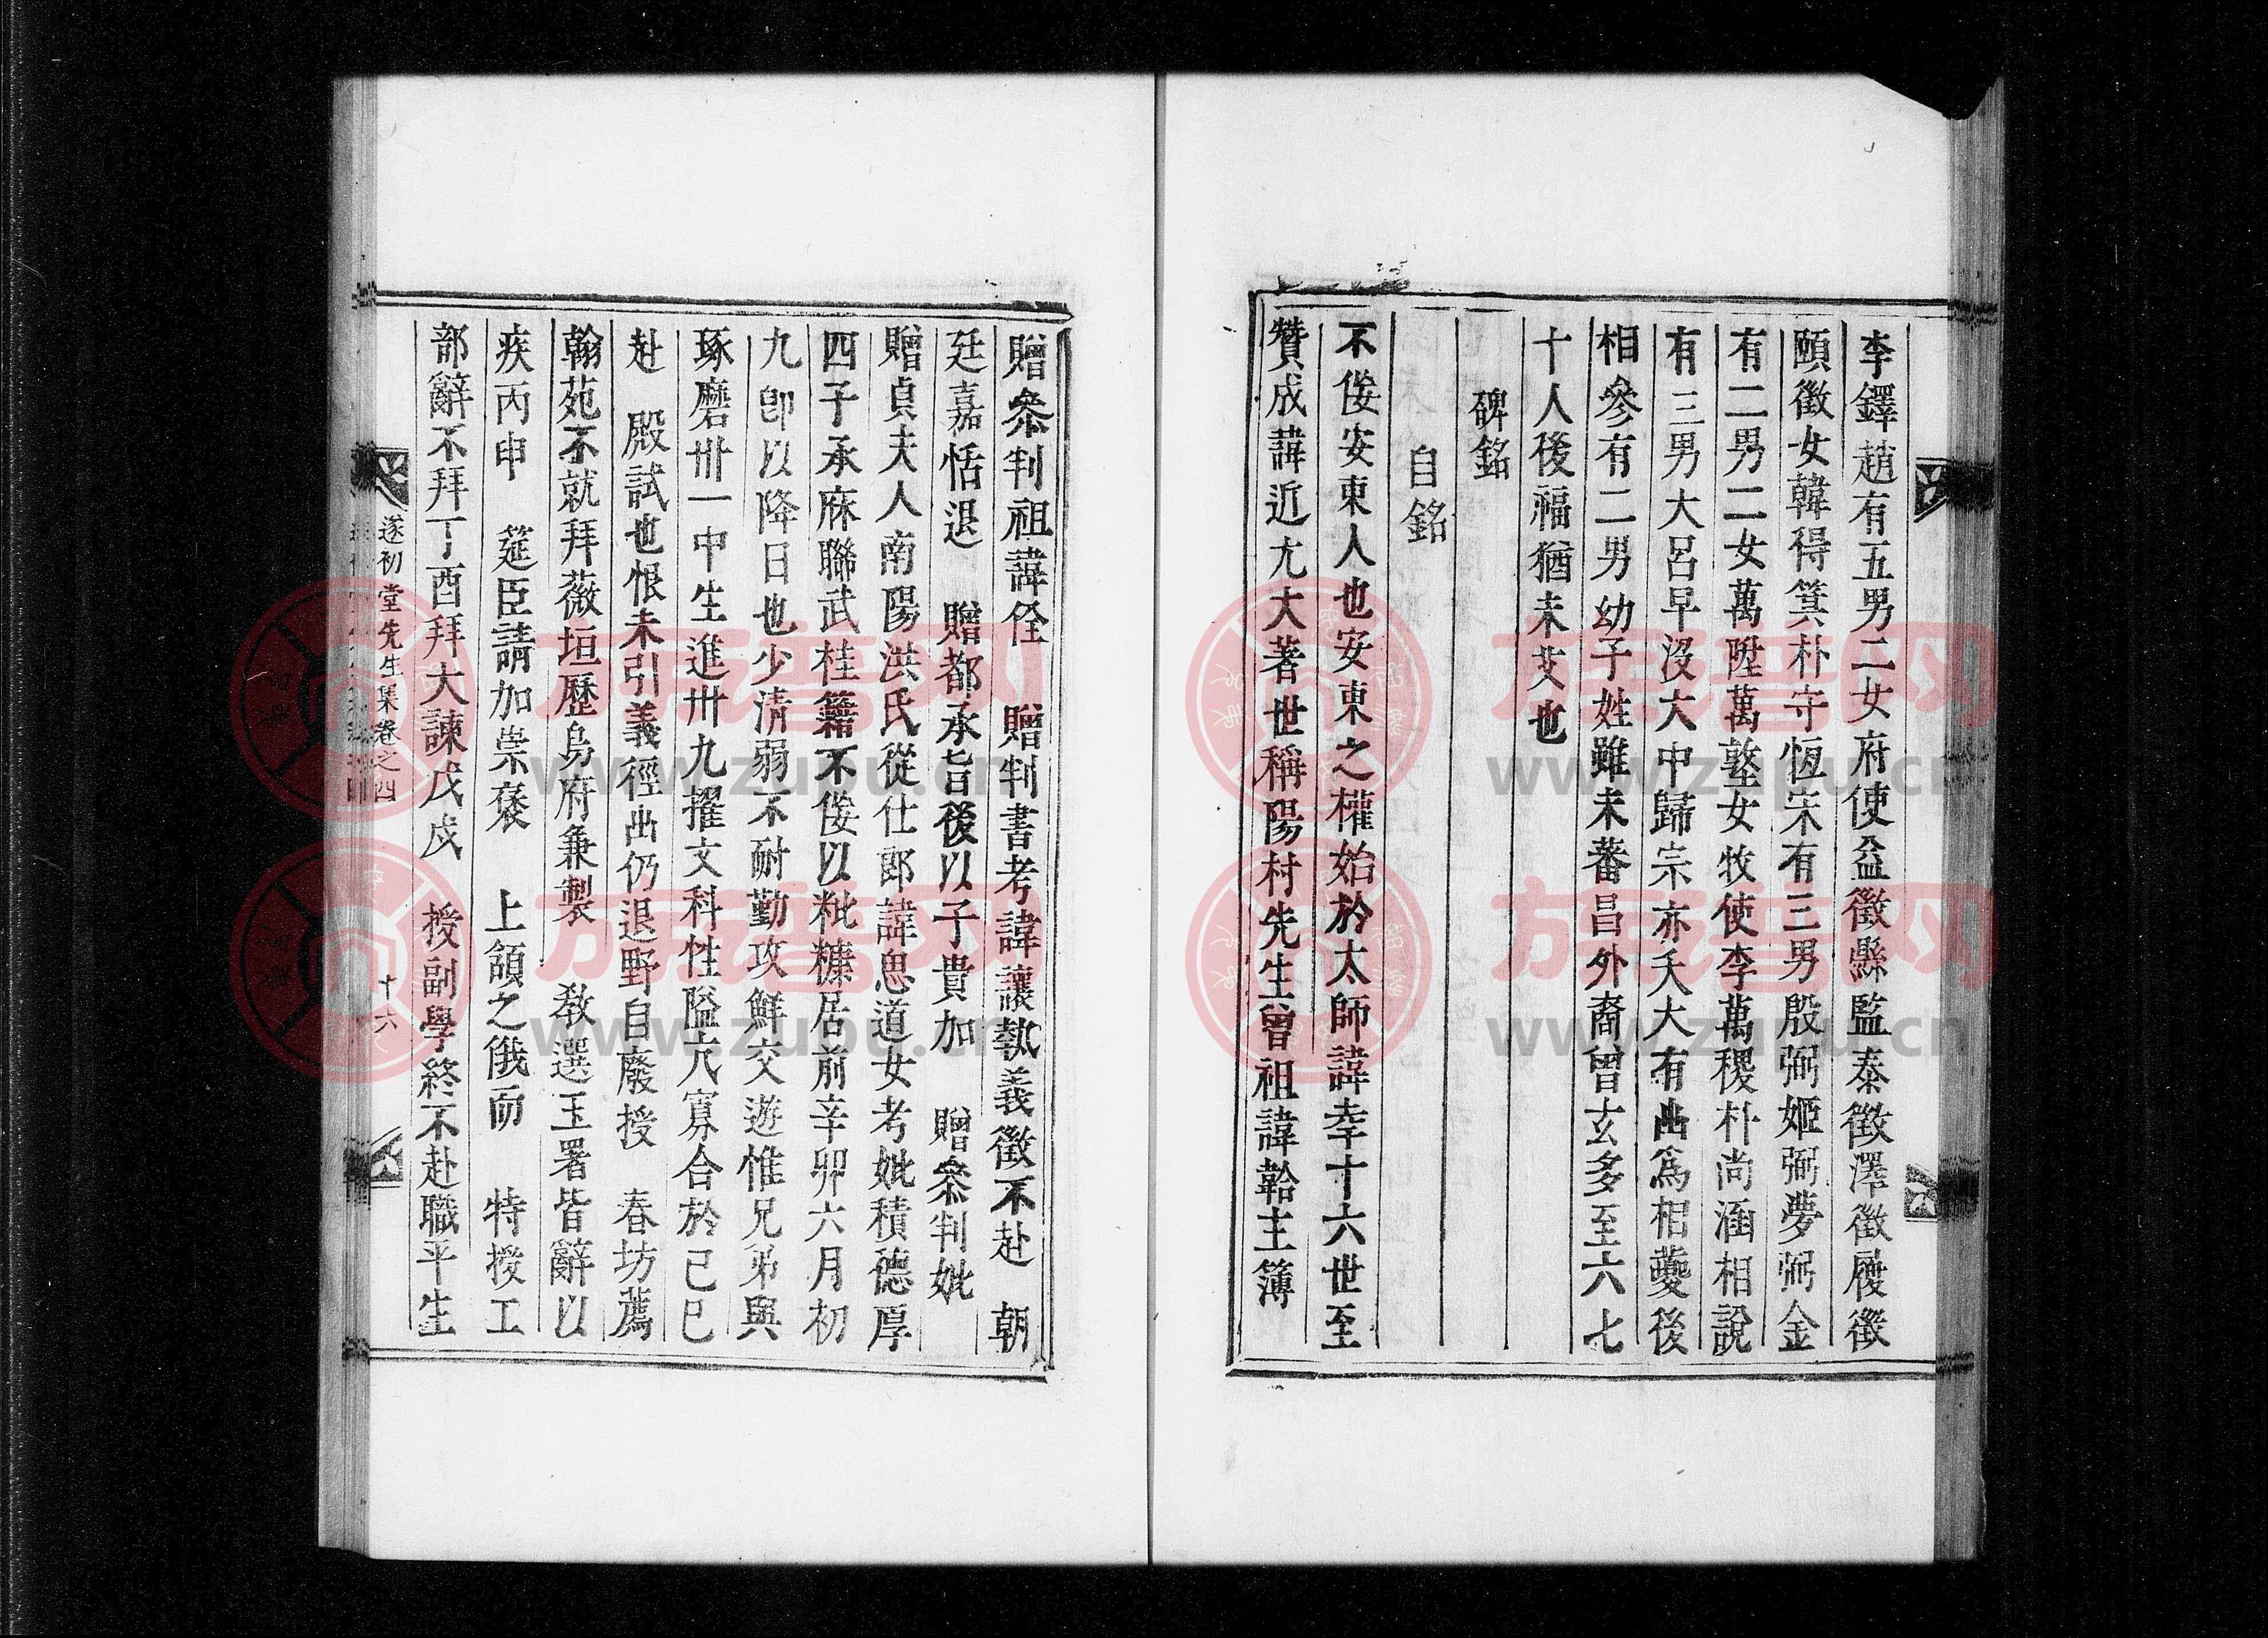 李鐸趙有五男二女府使益徵縣監泰徵澤徵履徵
頤徵女韓得箕朴守恆宋有三男殷弼姬弼夢弼金
有二男二女萬陞萬墪女牧使李萬稷朴尚涵相說
有三男大呂早沒大中歸宗亦夭大有出爲相夔後
相參有二男幼子姓雖未蕃昌外裔曾玄多至六七
十人後福猶未艾也
碑銘
自銘
不佞安東人也安東之權始於太師諱幸十六世至
贊成諱近尤大著世稱陽村先生曾祖諱韐主簿
贈叅判祖諱佺　贈判書考諱讓執義徵不赴　朝
廷嘉恬退　贈都承旨後以子貴加　贈叅判妣
贈貞夫人南陽洪氏從仕郎諱思道女考妣積德厚
四子承庥聯武桂籍不佞以粃糠居前辛卯六月初
九卽以降日也少清弱不耐勤攻鮮交遊惟兄弟與
琢磨卅一中生進卅九擢文科性隘亢寡合於己巳
赴　殿試也恨未引義徑出仍退野自廢授　春坊薦
翰苑不就拜薇垣歷烏府兼製　敎選玉署皆辭以
疾丙申　筵臣請加崇褒　上頷之俄而　特授工
部辭不拜丁酉拜大諫戊戌　授副學終不赴職平生
遂初堂先生集卷之四
十六
族譜网
www.zupu.cn
族譜网
www.zupu.cn
族譜网
www.zupu.cn
族譜网
www.zupu.cn